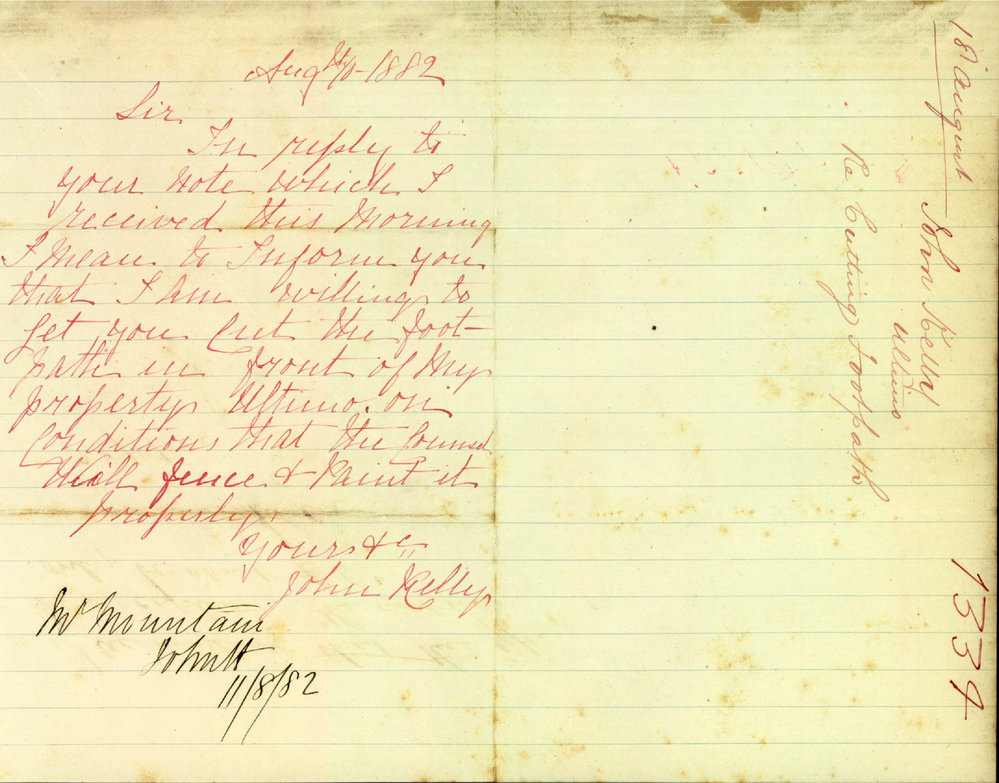 Augt 10-1882
Sir
In reply to
your note which I
received this morning
I mean to Inform you
that I am willing to
let you cut the foot-
path in front of my
property Ultimo. on
Conditions that the Counsel
Will fence & Paint it
properly.
Yours &c
John Kelly
Mr Mountain
11/8/82
18 August
John Kelly
Ultimo
Re Cutting Footpath
1334